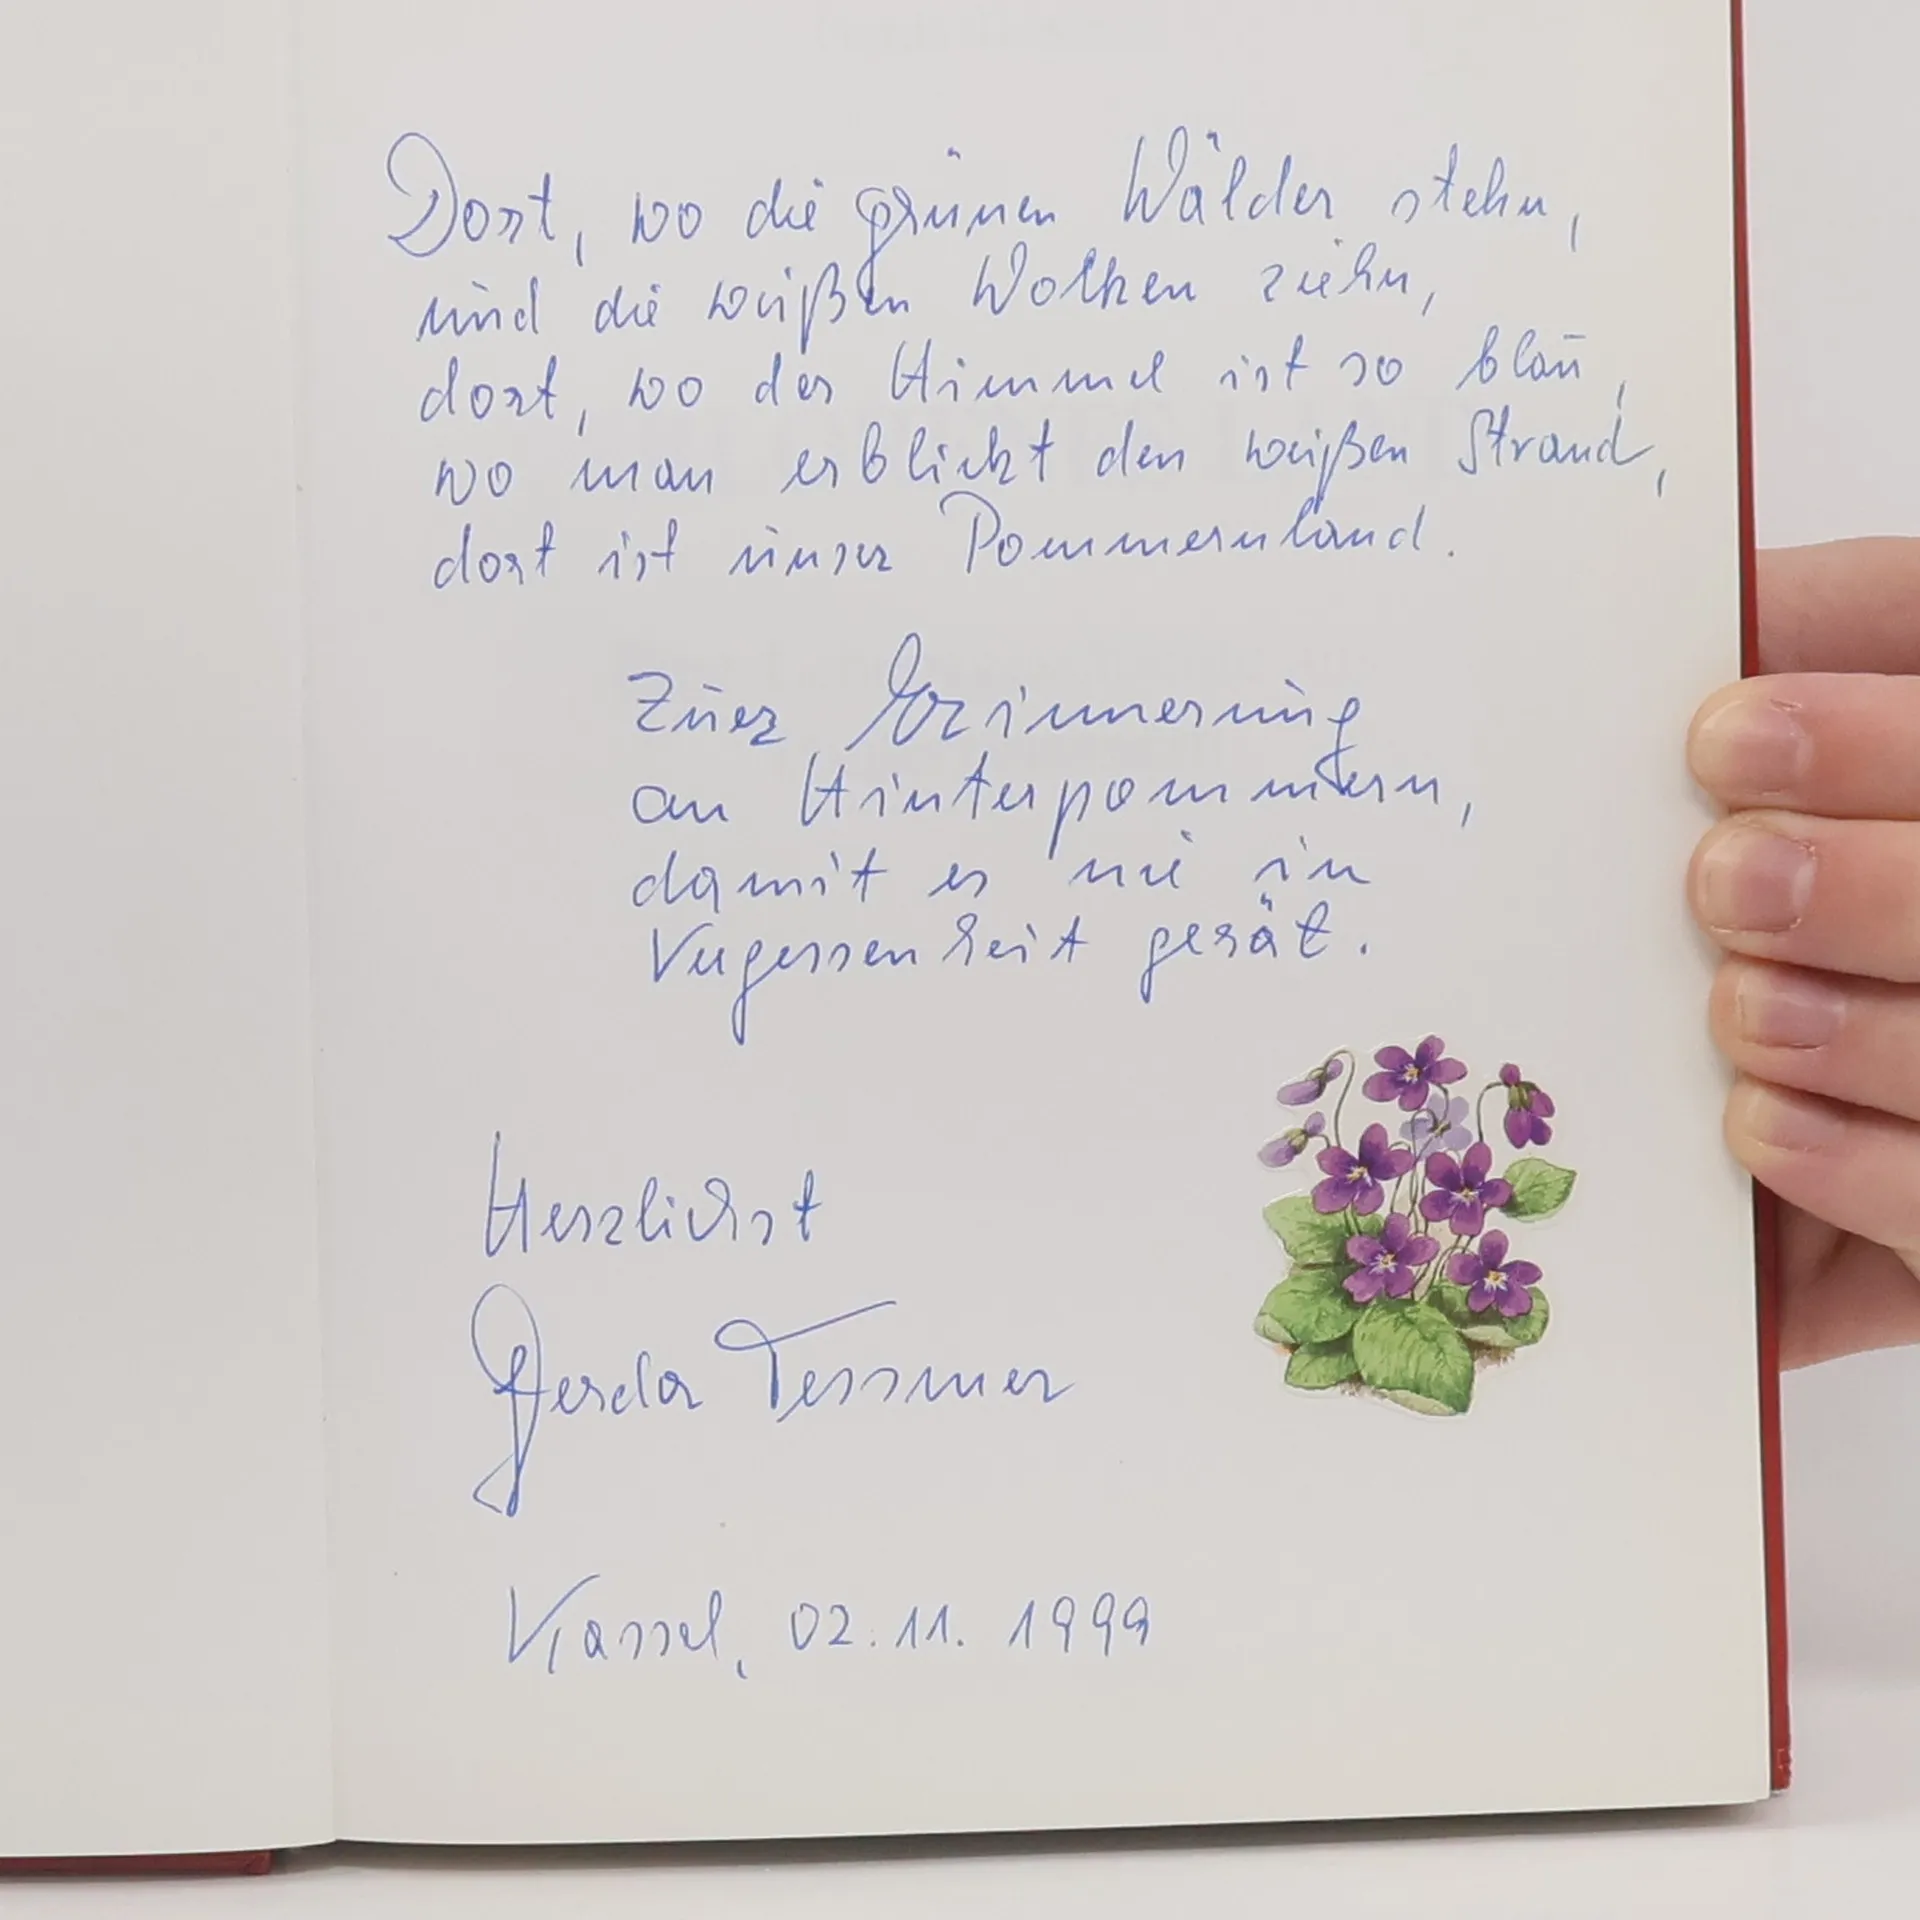 Dort, wo die grünen Wälder stehn,
und die weißen Wolken ziehn,
dort, wo der Himmel ist so blau,
wo man erblickt den weißen Strand,
dort ist unser Pommernland.
Zur Erinnerung
an Hinterpommern,
damit es nie in
Vergessenheit gerät.
Herzlichst
Gerda Tessmer
Kassel, 02.11.1999